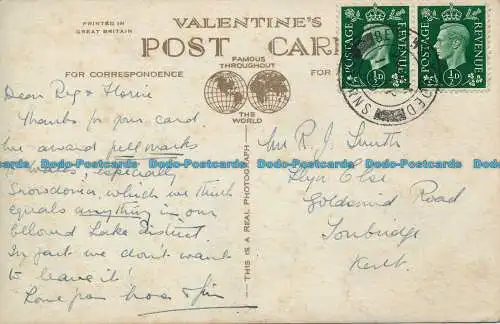 PRINTED IN
GREAT BRITAIN
VALENTINE'S
POST CARD
FOR CORRESPONDENCE
FAMOUS
THROUGHOUT
THE
WORLD
FOR
THIS IS A REAL PHOTOGRAPH
POSTAGE REVENUE
½D
POSTAGE REVENUE
½D
Dear Reg & Florrie
Thanks for your card
We award full marks
to Wales, especially
Snowdonia, which we think
equals anything in our
beloved Lake District.
In fact we don't want
to leave it!
Love from & Jim
Mr R. J. Smith
Goldsmid Road
Tonbridge
Kent.
Dodo-Postcards Dodo-Postcards Dodo-Postcards Dodo-Postcards Dodo-Postcards